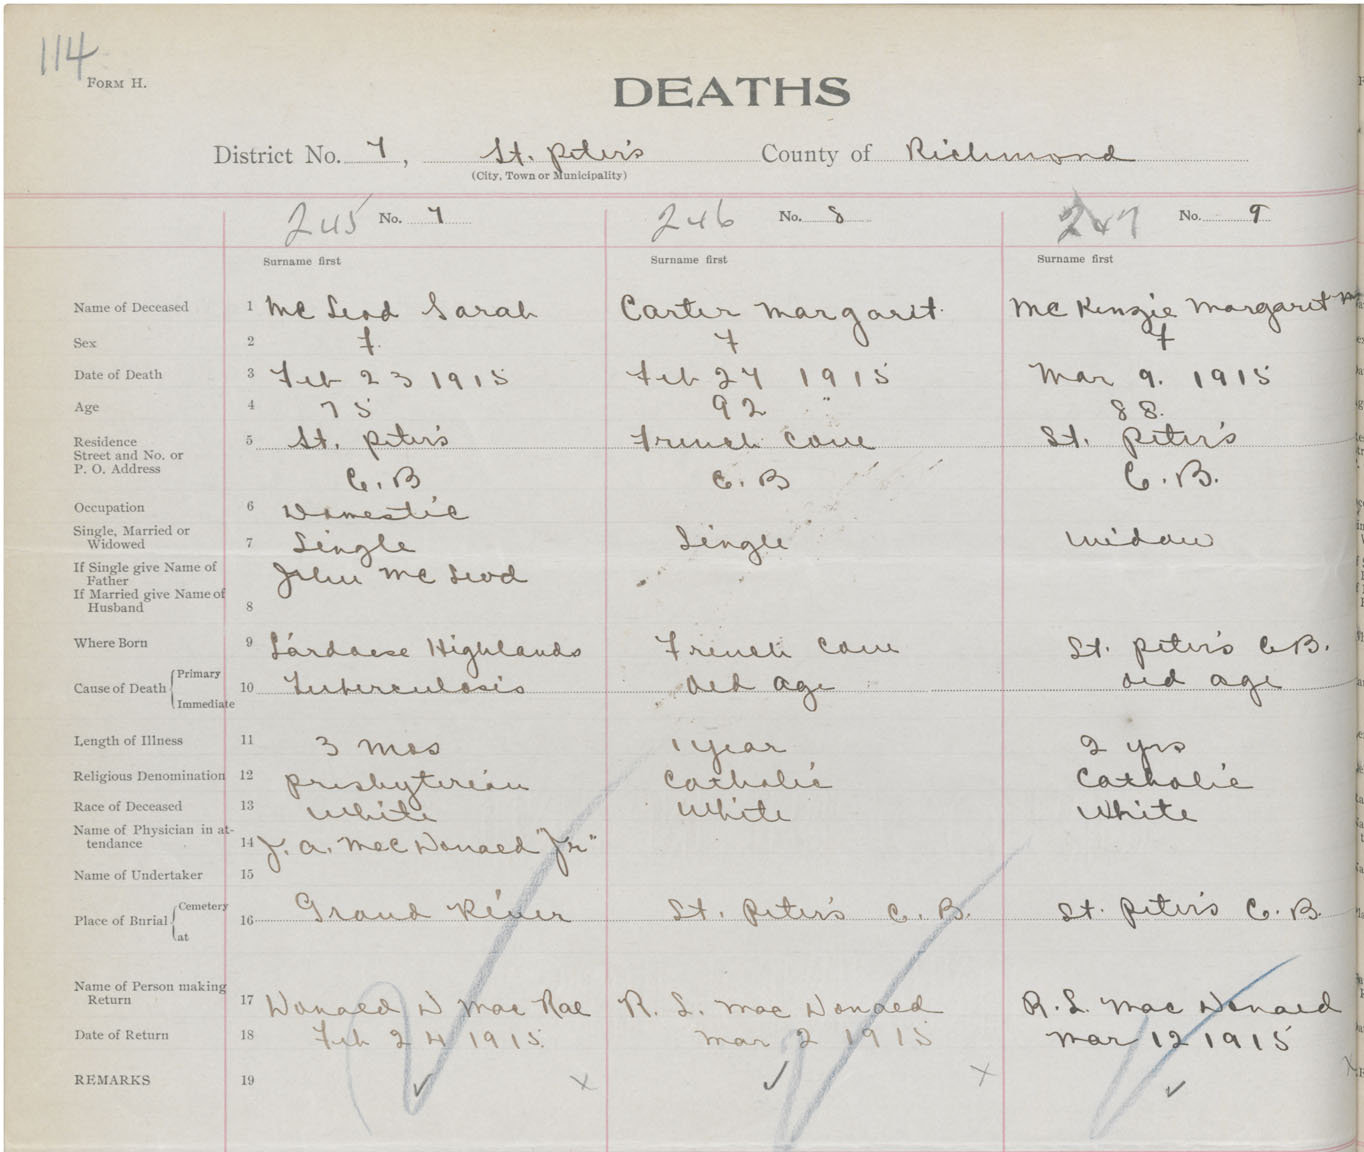 114
FORM H.
DEATHS
District No. 7, St. Peter's County of Richmond
(City, Town or Municipality)
245 No. 7 246 No. 8 247 No. 9
Surname first Surname first Surname first
Name of Deceased 1 McLeod Sarah Carter Margarit McKenzie Margarit
Sex 2 F. F F
Date of Death 3 Feb 23 1915 Feb 27 1915 Mar 9. 1915
Age 4 75 92 " 88.
Residence 5 St. Peter's French Cove St. Peter's
Street and No. or
P. O. Address C.B C.B C.B.
Occupation 6 Domestic
Single, Married or
Widowed 7 Single Single Widow
If Single give Name of
Father John McLeod
If Married give Name of
Husband 8
Where Born 9 Highlands French Cove St. Peter's C.B.
Cause of Death Primary 10 Tuberculosis Old age Old age
Immediate
Length of Illness 11 3 mos 1 year 2 yrs
Religious Denomination 12 Presbyterian Catholic Catholic
Race of Deceased 13 White White White
Name of Physician in at-
tendance 14 J. A. MacDonald "Jr"
Name of Undertaker 15
Place of Burial Cemetery 16 Grand River St. Peter's C.B. St. Peter's C.B.
at
Name of Person making
Return 17 Donald D MacRae R. L. MacDonald R. L. MacDonald
Date of Return 18 Feb 24 1915. Mar 2 1915 Mar 12 1915
REMARKS 19